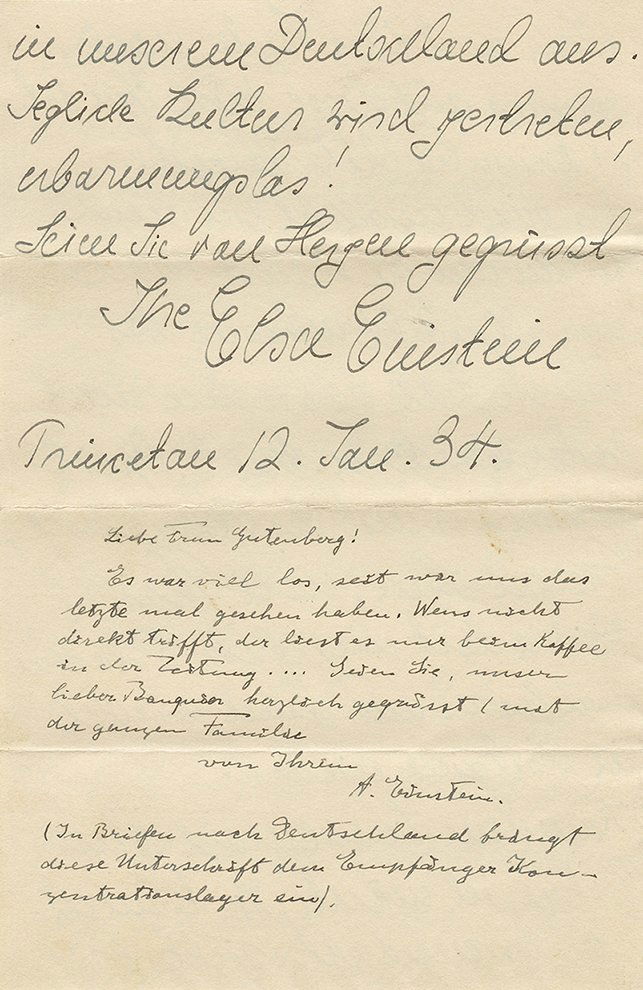 in unserem Deutschland aus.
Jegliche Kultur wird zertreten,
erbarmungslos!
Seien Sie von Herzen gegrüsst
Ihre Elsa Einstein
Princetau 12. Jan. 34.
Liebe Frau Gutenberg!
Es war viel los, seit wir uns das
letzte mal gesehen haben. Wens nicht
direkt trifft, der liest es nur beim Kaffee
in der Zeitung.... Seien Sie, unser
lieber Banquier herzlich gegrüsst (mit
der ganzen Familie
von Ihrem
A. Einstein.
(In Briefen nach Deutschland bringt
diese Unterschrift dem Empfänger Kon-
zentrationslager ein).